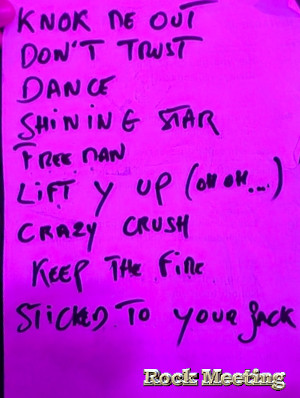 KNOK ME OUT
DON'T TRUST
DANCE
SHINING STAR
FREE MAN
LIFT Y UP (OH OH...)
CRAZY CRUSH
KEEP THE FIRE
STICKED TO YOUR JACK
Rock Meeting